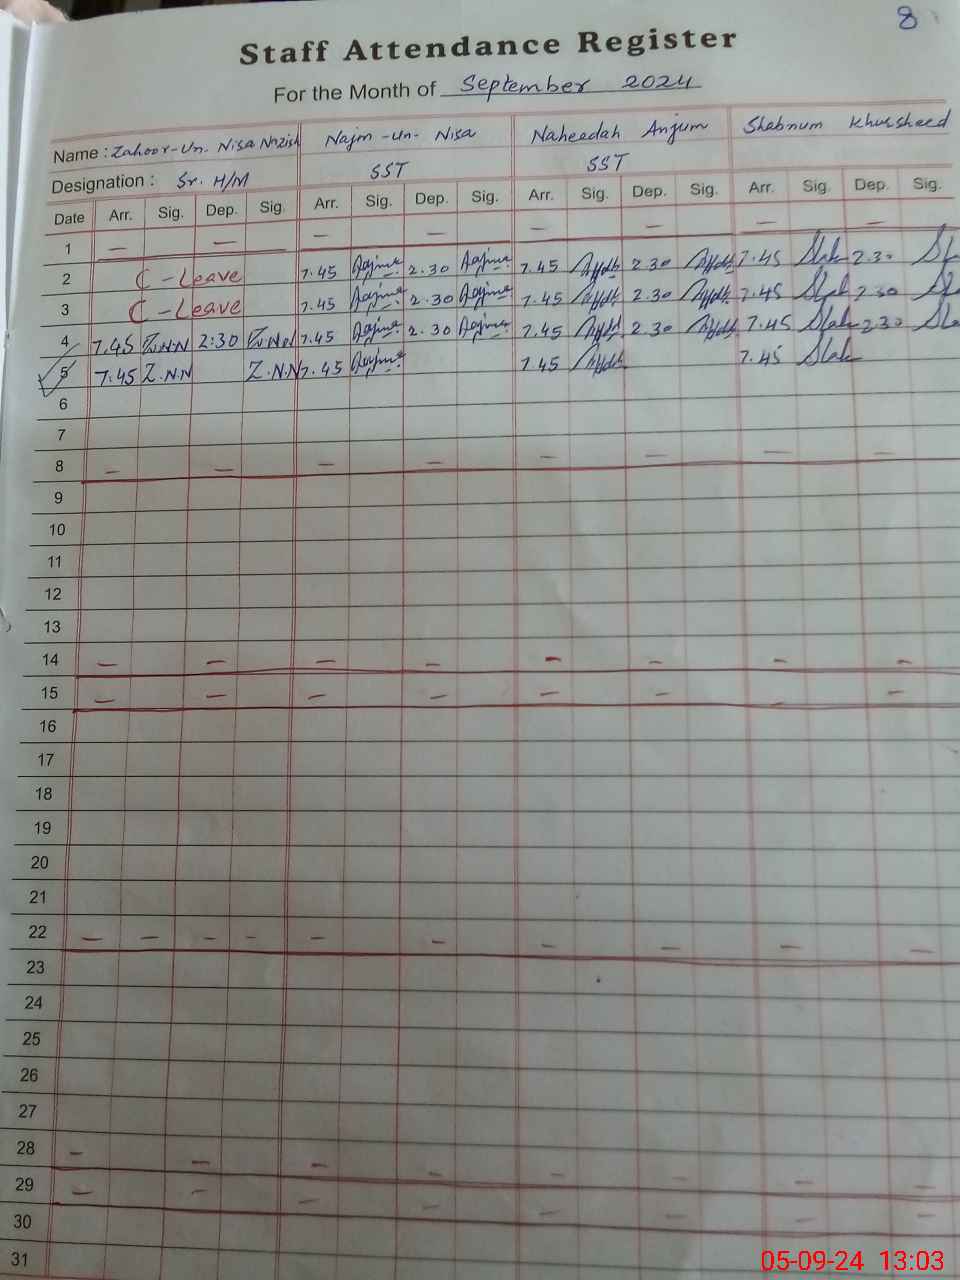 8
Staff Attendance Register
For the Month of September 2024
Name : Zahoor-Un. Nisa Nozish Najm -Un- Nisa Naheedah Anjum Shabnum Khursheed
Designation : Sr. H/M SST SST
Date Arr. Sig. Dep. Sig. Arr. Sig. Dep. Sig. Arr. Sig. Dep. Sig. Arr. Sig. Dep. Sig.
1 — — — — — — — —
2 C - Leave 7.45 2.30 7.45 2.30 7.45 2.30
3 C - Leave 7.45 2.30 7.45 2.30 7.45 2.30
4 7.45 Z.N.N 2:30 Z.N.N 7.45 2.30 7.45 2.30 7.45 2.30
5 7.45 Z.N.N Z.N.N 7.45 7.45 7.45
6
7
8 — — — — — — — —
9
10
11
12
13
14 — — — — — — — —
15 — — — — — — — —
16
17
18
19
20
21
22 — — — — — — — — — —
23
24
25
26
27
28 — — — — — — — —
29 — — — — — — — —
30
31
05-09-24 13:03